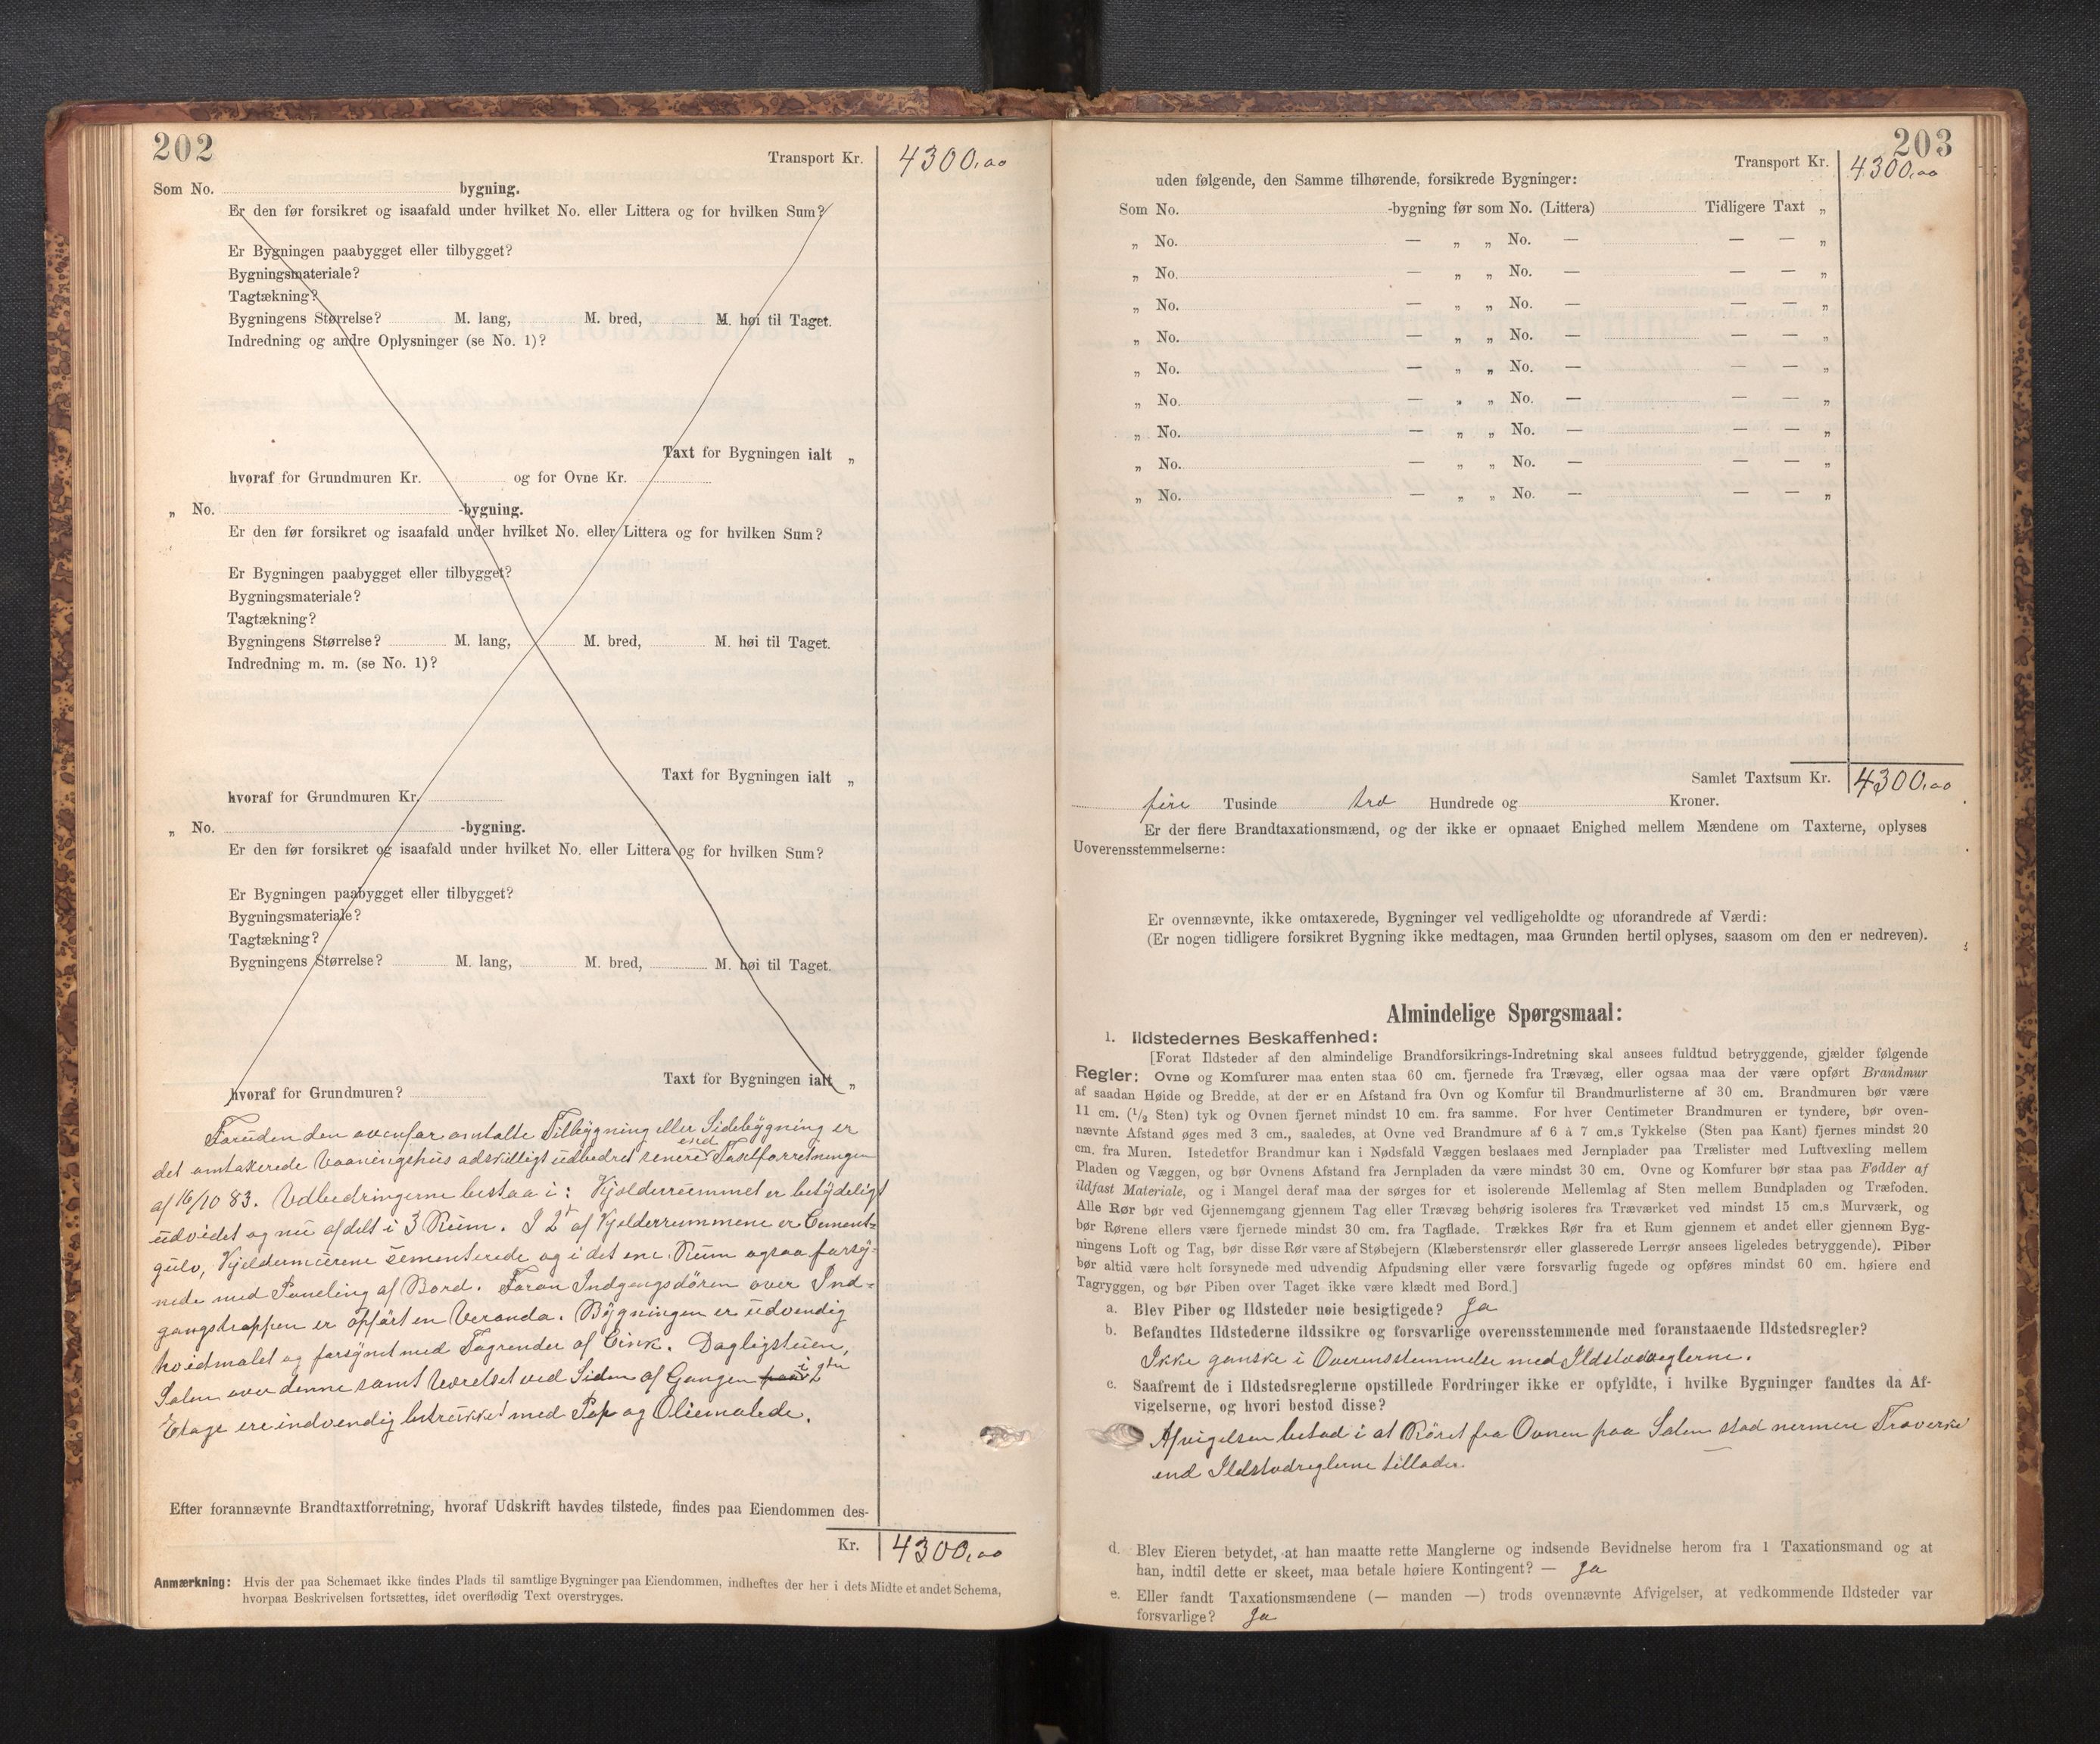 202
Transport Kr. 4300,00
Som No. bygning.
Er den før forsikret og isaafald under hvilket No. eller Littera og for hvilken Sum?
Er Bygningen paabygget eller tilbygget?
Bygningsmateriale?
Tagtækning?
Bygningens Størrelse? M. lang, M. bred, M. høi til Taget.
Indredning og andre Oplysninger (se No. 1)?
Taxt for Bygningen ialt „
hvoraf for Grundmuren Kr. og for Ovne Kr.
„ No. -bygning.
Er den før forsikret og isaafald under hvilket No. eller Littera og for hvilken Sum?
Er Bygningen paabygget eller tilbygget?
Bygningsmateriale?
Tagtækning?
Bygningens Størrelse? M. lang, M. bred, M. høi til Taget.
Indredning m. m. (se No. 1)?
Taxt for Bygningen ialt „
hvoraf for Grundmuren Kr.
„ No. -bygning.
Er den før forsikret og isaafald under hvilket No. eller Littera og for hvilken Sum?
Er Bygningen paabygget eller tilbygget?
Bygningsmateriale?
Tagtækning?
Bygningens Størrelse? M. lang, M. bred, M. høi til Taget.
Taxt for Bygningen ialt „
hvoraf for Grundmuren?
Foruden den ovenfor omtalte Tilbygning eller Sidebygning er
det omtaxerede Vaaningshus adskilligt udbedret senere end Taxtforretningen
af 16/10 83. Udbedringerne bestaa i: Kjelderrummet er betydeligt
udvidet og nu afdelt i 3 Rum. I 2 af Kjelderrummene er Cement-
gulv, Kjeldermurene sementerede og i det ene Rum ogsaa forsy-
nede med Paneling af Bord. Foran Indgangsdören over Ind-
gangstrappen er opfört en Veranda. Bygningen er udvendig
hvidmalet og forsynet med Tagrender af Cink. Dagligstuen,
Salen over denne samt Værelset ved Siden af Gangen paa i 2den
Etage ere indvendig betrukket med Pap og Oliemalede.
Efter forannævnte Brandtaxtforretning, hvoraf Udskrift havdes tilstede, findes paa Eiendommen des-
Kr. 4300,00
Anmærkning: Hvis der paa Schemaet ikke findes Plads til samtlige Bygninger paa Eiendommen, indheftes der her i dets Midte et andet Schema,
hvorpaa Beskrivelsen fortsættes, idet overflødig Text overstryges.
203
Transport Kr. 4300,00
uden følgende, den Samme tilhørende, forsikrede Bygninger:
Som No. -bygning før som No. (Littera) Tidligere Taxt „
„ No. — „ „ No. — — — „
„ No. — „ „ No. — — — „
„ No. — „ „ No. — — — „
„ No. — „ „ No. — — — „
„ No. — „ „ No. — — — „
„ No. — „ „ No. — — — „
„ No. — „ „ No. — — — „
„ No. — „ „ No. — — — „
„ No. — „ „ No. — — — „
Samlet Taxtsum Kr. 4300,00
fire Tusinde tre Hundrede og Kroner.
Er der flere Brandtaxationsmænd, og der ikke er opnaaet Enighed mellem Mændene om Taxterne, oplyses
Uoverensstemmelserne:
Er ovennævnte, ikke omtaxerede, Bygninger vel vedligeholdte og uforandrede af Værdi:
(Er nogen tidligere forsikret Bygning ikke medtagen, maa Grunden hertil oplyses, saasom om den er nedreven).
Almindelige Spørgsmaal:
1. Ildstedernes Beskaffenhed:
[Forat Ildsteder af den almindelige Brandforsikrings-Indretning skal ansees fuldtud betryggende, gjælder følgende
Regler: Ovne og Komfurer maa enten staa 60 cm. fjernede fra Trævæg, eller ogsaa maa der være opført Brandmur
af saadan Høide og Bredde, at der er en Afstand fra Ovn og Komfur til Brandmurlisterne af 30 cm. Brandmuren bør være
11 cm. (1/2 Sten) tyk og Ovnen fjernet mindst 10 cm. fra samme. For hver Centimeter Brandmuren er tyndere, bør oven-
nævnte Afstand øges med 3 cm., saaledes, at Ovne ved Brandmure af 6 à 7 cm.s Tykkelse (Sten paa Kant) fjernes mindst 20
cm. fra Muren. Istedetfor Brandmur kan i Nødsfald Væggen beslaaes med Jernplader paa Trælister med Luftvexling mellem
Pladen og Væggen, og bør Ovnens Afstand fra Jernpladen da være mindst 30 cm. Ovne og Komfurer bør staa paa Fødder af
ildfast Materiale, og i Mangel deraf maa der sørges for et isolerende Mellemlag af Sten mellem Bundpladen og Træfoden.
Alle Rør bør ved Gjennemgang gjennem Tag eller Trævæg behørig isoleres fra Træværket ved mindst 15 cm.s Murværk, og
bør Rørene ellers være fjernede mindst 30 cm. fra Tagflade. Trækkes Rør fra et Rum gjennem et andet eller gjennem Byg-
ningens Loft og Tag, bør disse Rør være af Støbejern (Klæberstensrør eller glasserede Lerrør ansees ligeledes betryggende). Piber
bør altid være helt forsynede med udvendig Afpudsning eller være forsvarlig fugede og opføres mindst 60 cm. høiere end
Tagryggen, og bør Piben over Taget ikke være klædt med Bord.]
a. Blev Piber og Ildsteder nøie besigtigede? Ja
b. Befandtes Ildstederne ildssikre og forsvarlige overensstemmende med foranstaaende Ildstedsregler?
Ikke ganske i Overensstemmelse med Ildstedsreglerne.
c. Saafremt de i Ildstedsreglerne opstillede Fordringer ikke er opfyldte, i hvilke Bygninger fandtes da Af-
vigelserne, og hvori bestod disse?
Afvigelsen bestod i at Röret fra Ovnen paa Salen stod nermere Træverke
end Ildstedreglerne tillader.
d. Blev Eieren betydet, at han maatte rette Manglerne og indsende Bevidnelse herom fra 1 Taxationsmand og at
han, indtil dette er skeet, maa betale høiere Kontingent? — Ja
e. Eller fandt Taxationsmændene (— manden —) trods ovennævnte Afvigelser, at vedkommende Ildsteder var
forsvarlige? Ja